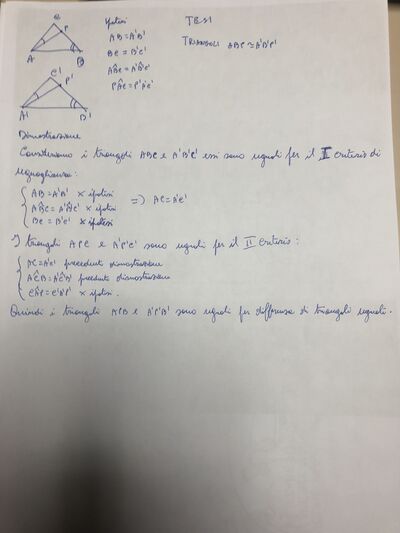 C
P
A
B
C'
P'
A'
B'
Ipotesi
AB=A'B'
BC=B'C'
AB̂C=A'B̂'C'
PÂC=P'Â'C'
TESI
TRIANGOLI ABP≅A'B'P'
Dimostrazione
Consideriamo i triangoli ABC e A'B'C' essi sono uguali per il I criterio di
uguaglianza:
AB=A'B' x ipotesi
AB̂C=A'B̂'C' x ipotesi => AC=A'C'
BC=B'C' x ipotesi
I triangoli APC e A'P'C' sono uguali per il II criterio:
AC=A'C' precedente dimostrazione
AĈB=A'Ĉ'B' precedente dimostrazione
CÂP=C'Â'P' x ipotesi.
Quindi i triangoli APB e A'P'B' sono uguali per differenza di triangoli uguali.